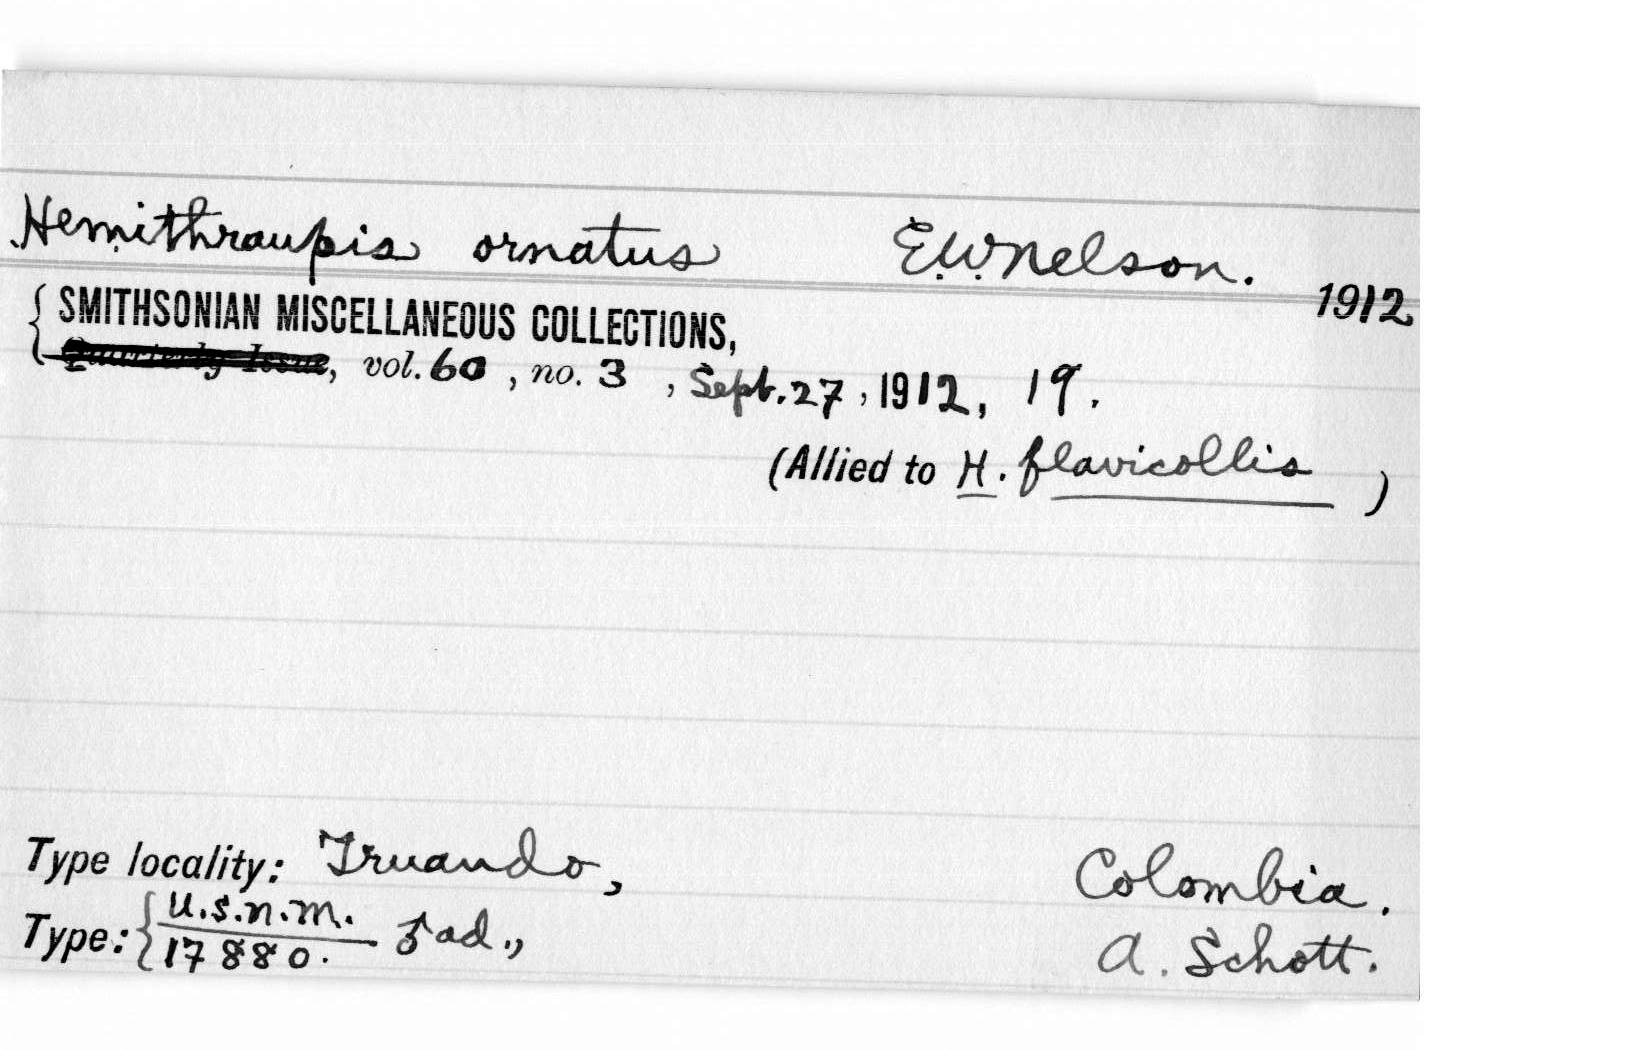 Hemithraupis ornatus E.W. Nelson.
1912
{ SMITHSONIAN MISCELLANEOUS COLLECTIONS,
Quarterly Issue, vol. 60 , no. 3 , Sept. 27 , 1912, 19.
(Allied to H. flavicollis )
Type locality: Truando, Colombia.
Type: { U.S.N.M. 17880. ♂ ad., A. Schott.